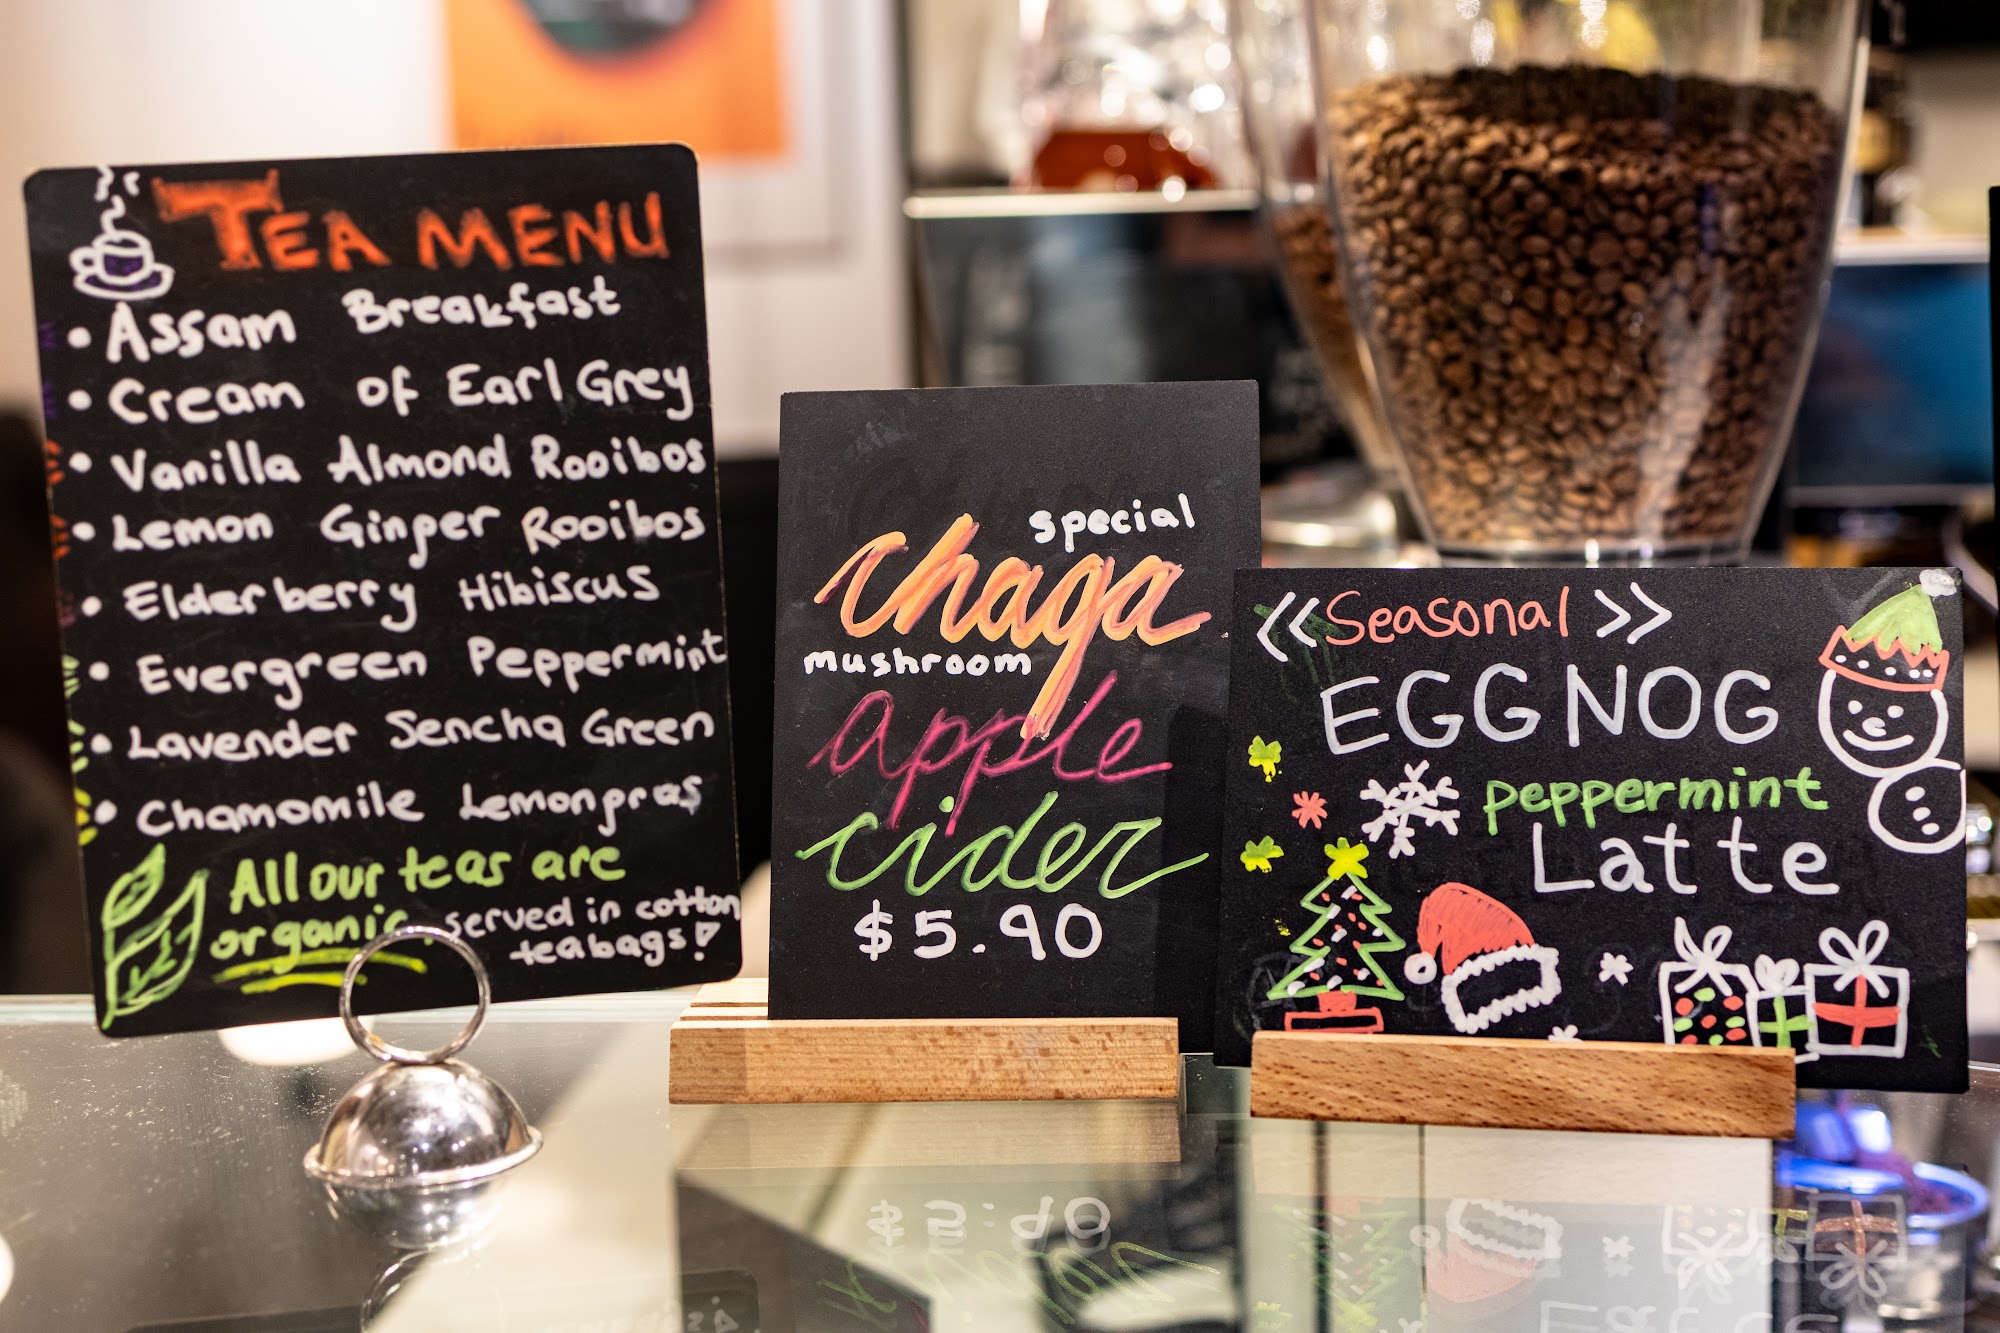 TEA MENU
• Assam Breakfast
• Cream of Earl Grey
• Vanilla Almond Rooibos
• Lemon Ginger Rooibos
• Elderberry Hibiscus
• Evergreen Peppermint
• Lavender Sencha Green
• Chamomile Lemongras
All our teas are
organic, served in cotton
teabags!
special
chaga
mushroom
apple
cider
$5.90
<<Seasonal>>
EGG NOG
peppermint
Latte